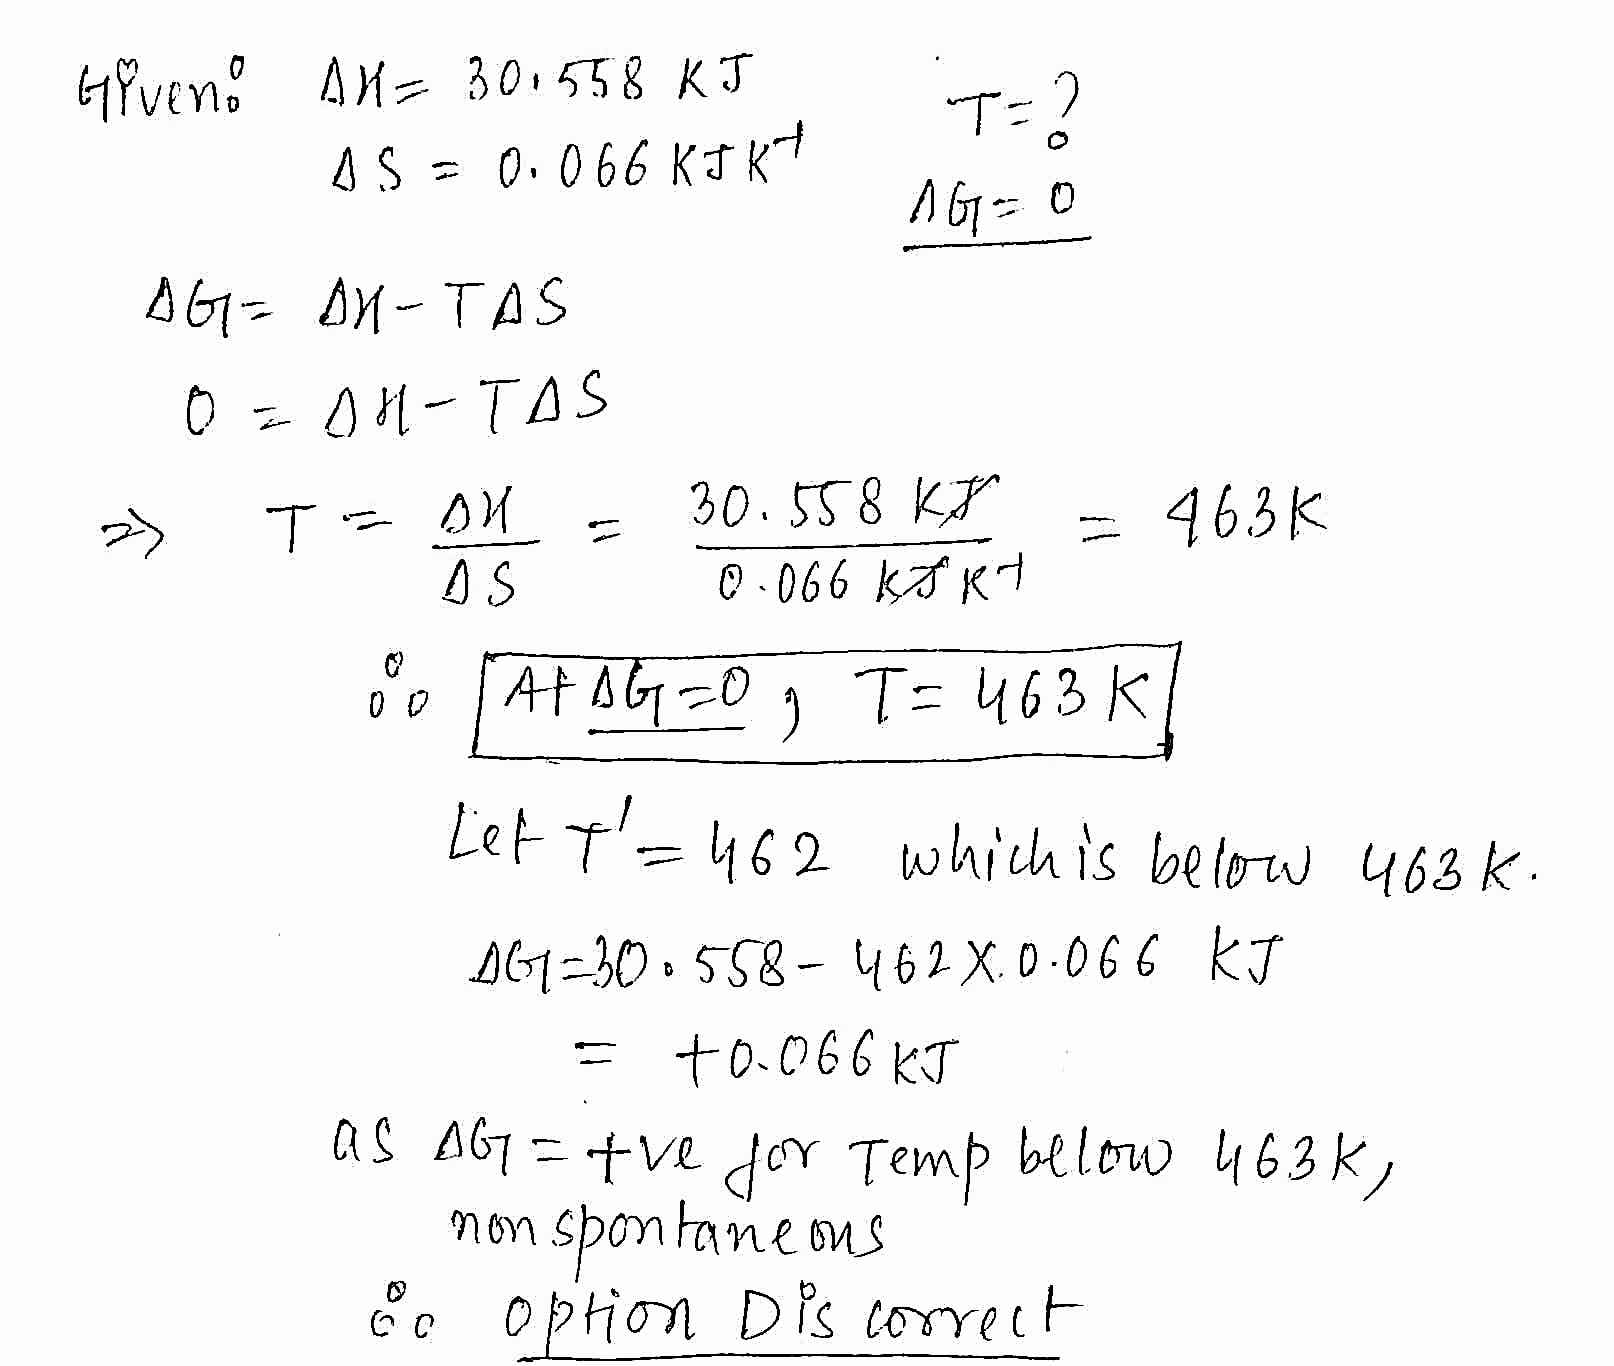 Given: ΔH = 30.558 KJ
ΔS = 0.066 KJ K⁻¹
T = ?
ΔG = 0
ΔG = ΔH - TΔS
0 = ΔH - TΔS
⇒ T = ΔH/ΔS = 30.558 KJ / 0.066 KJ K⁻¹ = 463K
∴ At ΔG = 0, T = 463 K
Let T' = 462 which is below 463 K.
ΔG = 30.558 - 462 X 0.066 KJ
= +0.066 KJ
as ΔG = +ve for Temp below 463K,
non spontaneous
∴ option D is correct